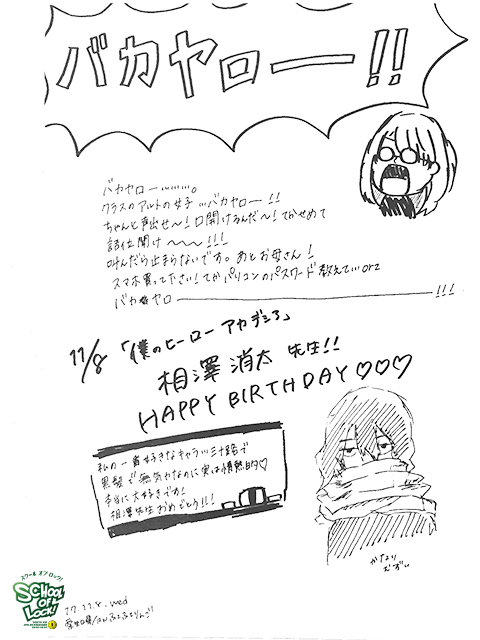 バカヤロー!!
バカヤロー……。
クラスのアルトの女子…バカヤロー!!
ちゃんと声出せ〜!口開けるんだ〜!てかせめて
話位聞け〜〜〜!!!
叫んだら止まらないです。あとお母さん!
スマホ買って下さい!てかパソコンのパスワード教えて…orz
バカヤロー!!!
11/8「僕のヒーローアカデミア」
相澤 消太 先生!!
HAPPY BIRTHDAY♡♡♡
私の一番好きなキャラ…三十路で
黒髪で無気力なのに実は情熱的♡
本当に大好きです!
相澤先生おめでとう!!!
かなり
むずい
スクール オブ ロック!
SCHOOL OF LOCK!
17.11.8.wed